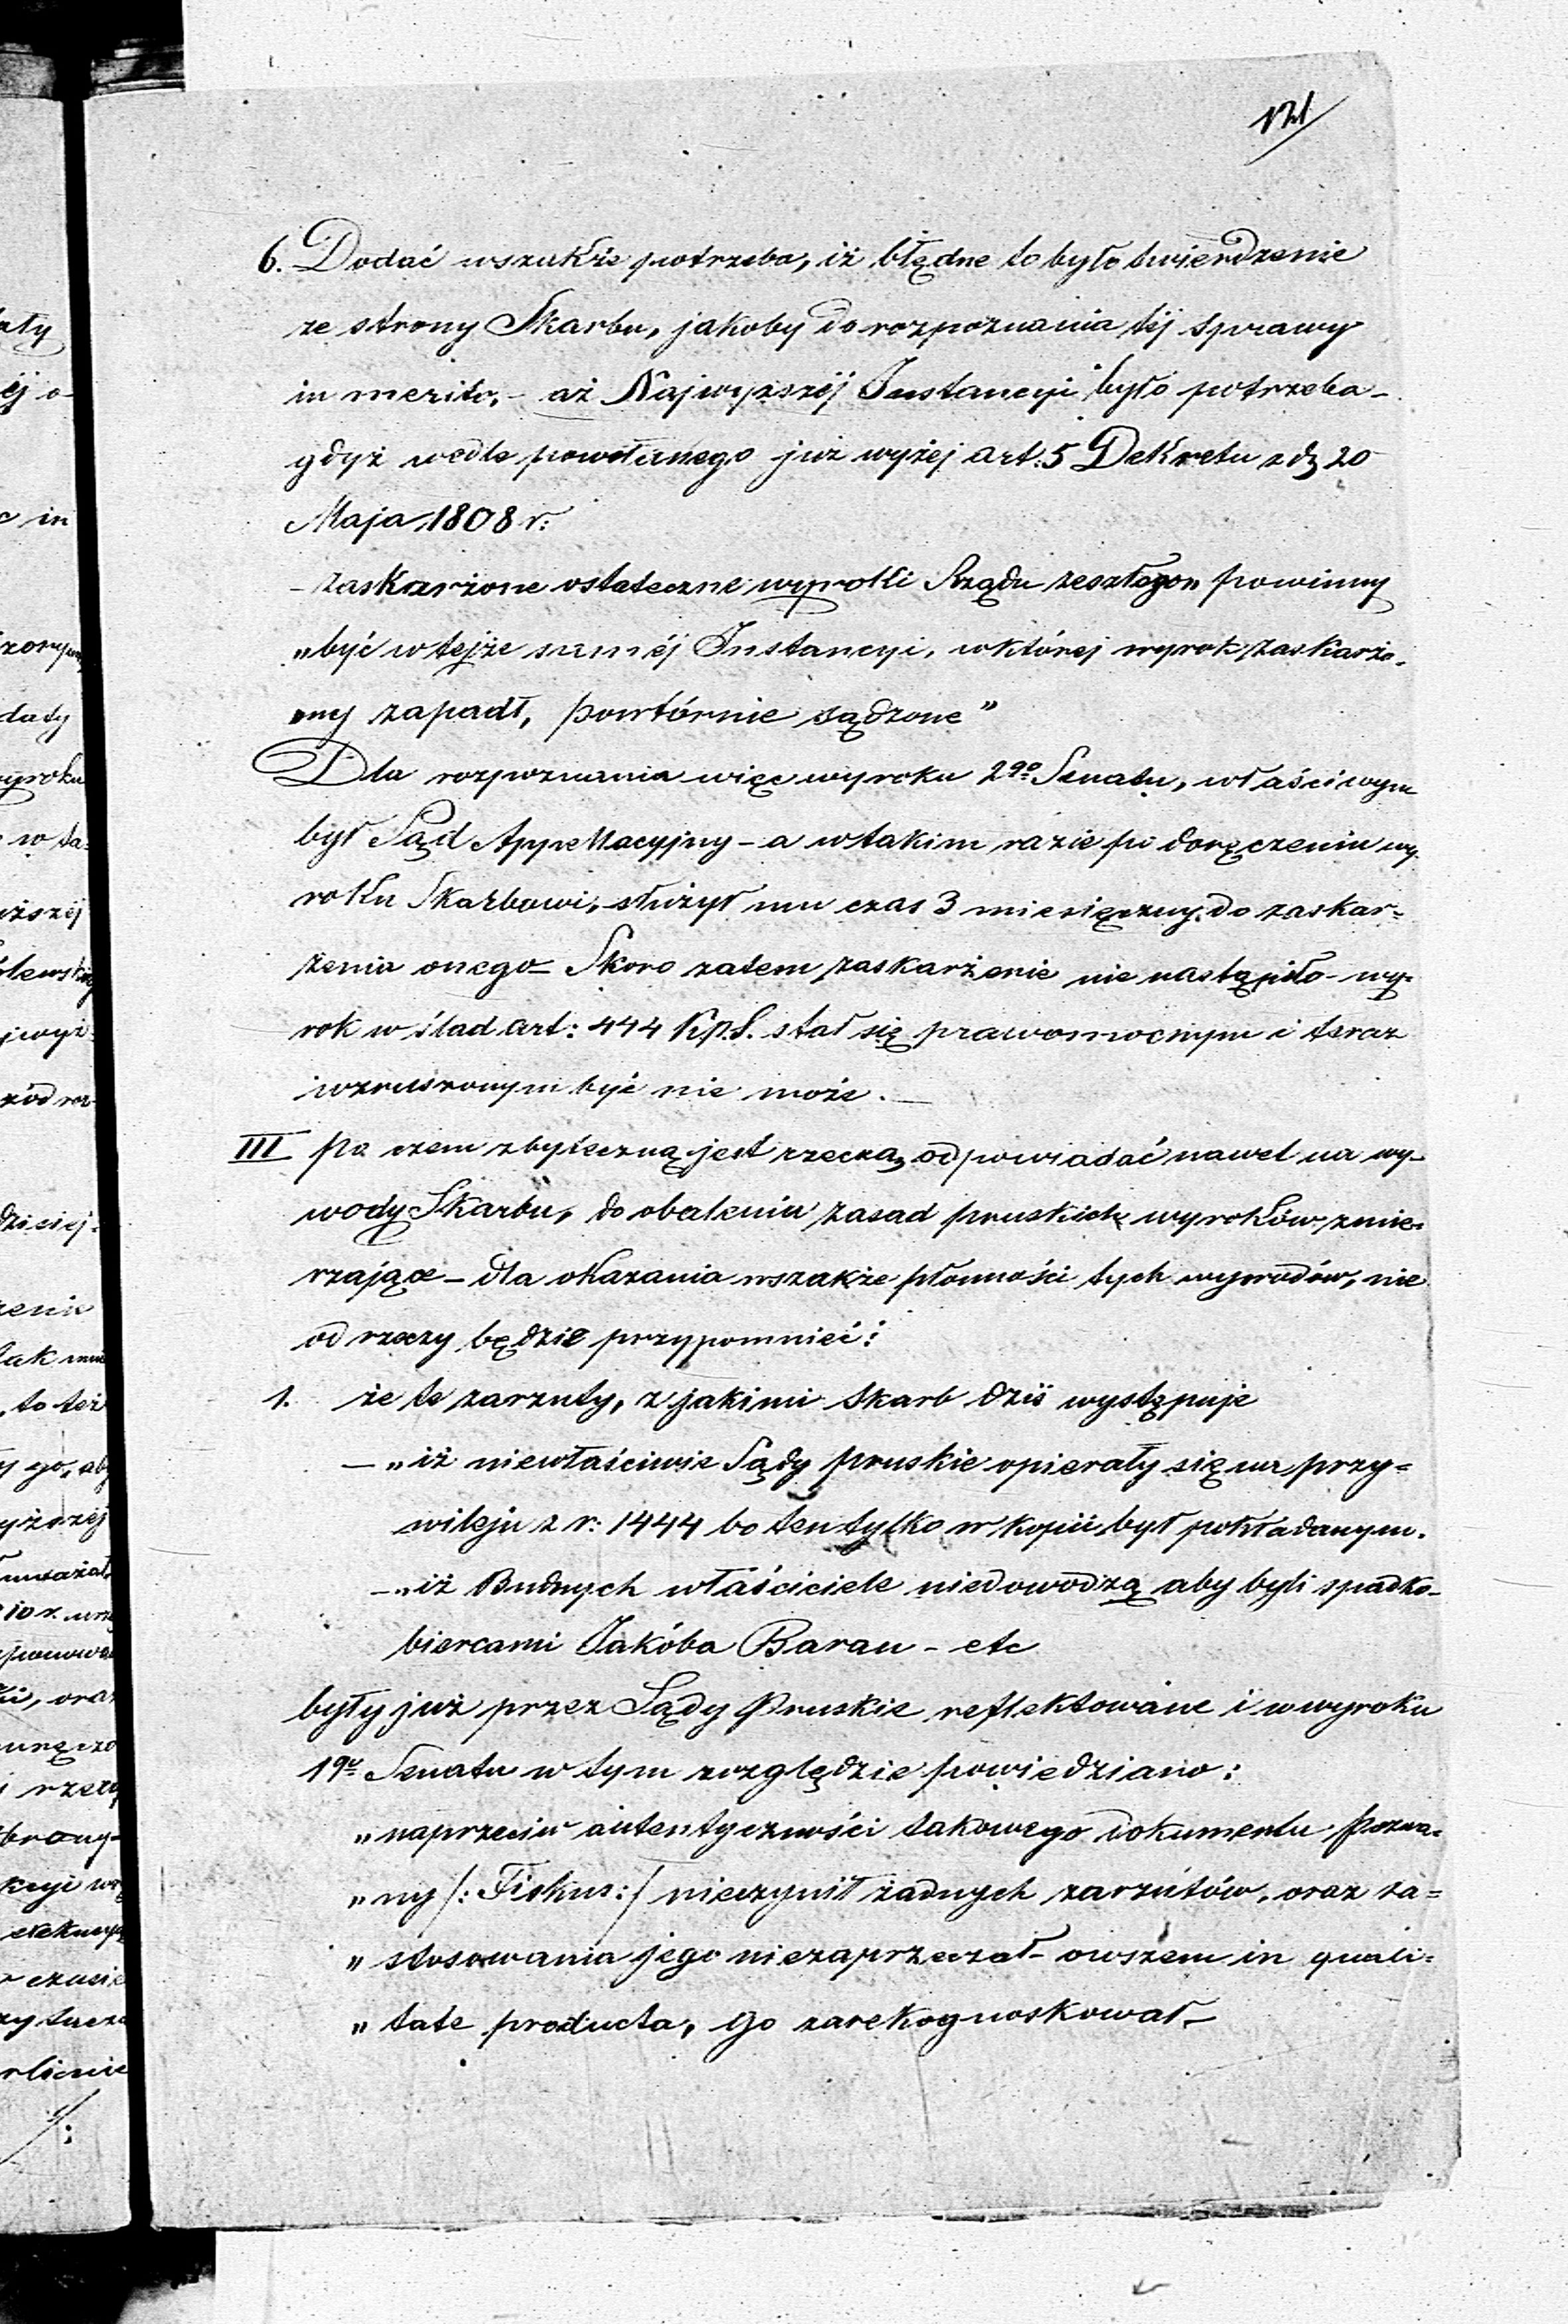 121
6. Dodać wszakże potrzeba, iż błędne to było twierdzenie
ze strony Skarbu, jakoby do rozpoznania téj sprawy
in merito, – aż Najwyższéj Instancyi było potrzeba –
gdyż wedle powołanego już wyżej art: 5 Dekretu z d. 20
Maja 1808 r:
– zaskarżone ostateczne wyroki Rządu zeszłego powinny
„być w tejże saméj Instancyi, w której wyrok zaskarżo-
„ny zapadł, powtórnie sądzone”
Dla rozpoznania więc wyroku 2go Senatu, właściwym
był Sąd Appellacyjny – a w takim razie po doręczeniu wy-
roku Skarbowi, służył mu czas 3 miesięczny do zaskar-
żenia onego – Skoro zatem zaskarżenie nie nastąpiło – wy-
rok w ślad art: 444 K.p.S. stał się prawomocnym i teraz
wzruszonym być nie może. –
III Po czem zbyteczną jest rzeczą odpowiadać nawet na wy-
wody Skarbu, do obalenia zasad pruskich wyroków zmie-
rzające – dla okazania wszakże płonności tych wywodów, nie
od rzeczy będzie przypomnieć:
1. że te zarzuty, z jakimi Skarb dziś występuje
– „iż niewłaściwie Sądy pruskie opierały się na przy-
wileju z r: 1444 bo ten tylko w kopii był pokładanym.
– „iż Budnych właściciele niedowodzą aby byli spadko-
biercami Jakóba Baran – etc
były już przez Sądy Pruskie reflektowane i w wyroku
1go Senatu w tym względzie powiedziano:
„naprzeciw autentyczności takowego dokumentu Pozwa-
„ny /: Fiskus :/ nieczynił żadnych zarzutów, oraz za-
„stosowania jego niezaprzeczał – owszem in quali-
„tate producta, go zarekognoskował –